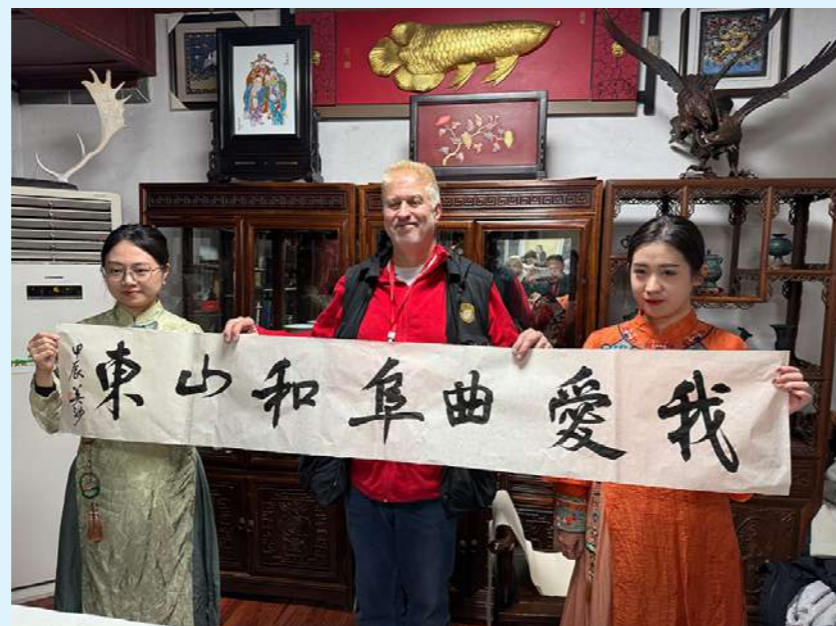 我愛曲阜和山東
甲辰